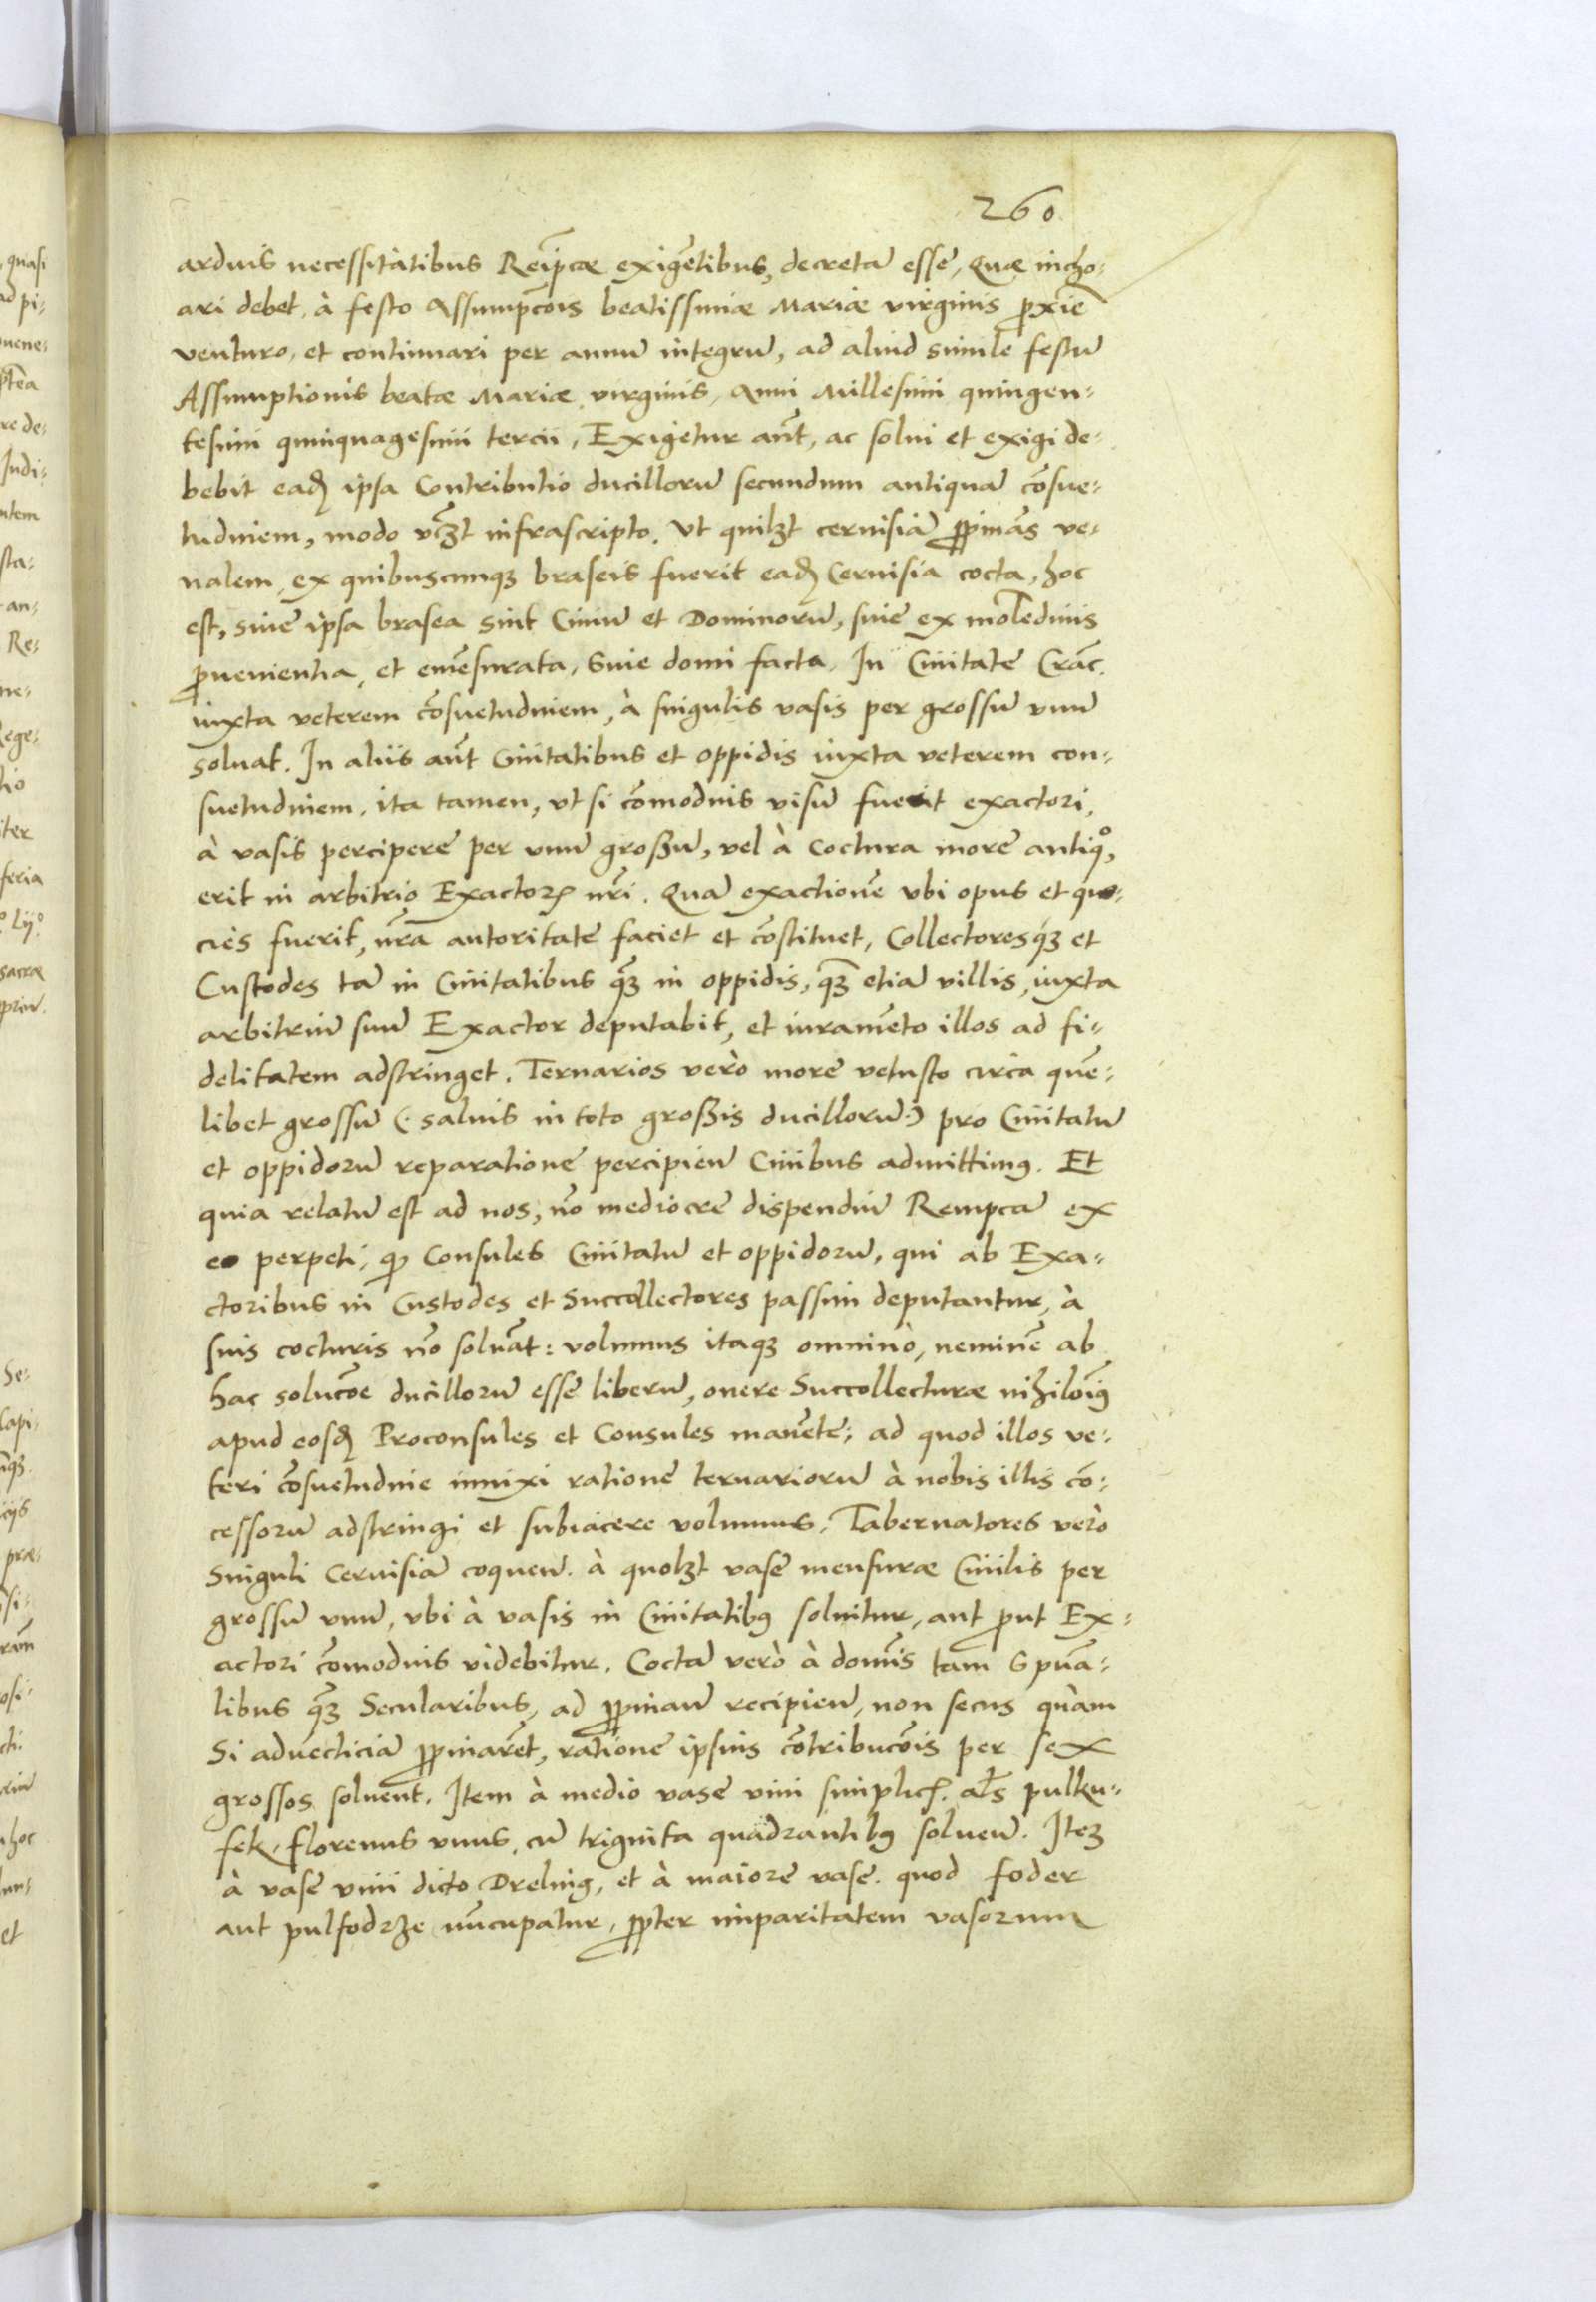 260
arduis necessitatibus Reipcae exigētibus, decretā esse, Quae incho-
ari debet, à festo Assumpcōis beatissimae Mariae virginis proxie
venturo, et continuari per annū integrū, ad aliud simile festū
Assumptionis beatae Mariae virginis, Anni Millesimi quingen-
tesimi quinquagesimi tercii, Exigetur aūt, ac solui et exigi de-
bebit eadē ipsa Contributio ducillorū secundum antiquā cōsue-
tudinem, modo vcȝt infrascripto. Vt quilȝt ceruisiā propinās ve-
nalem, ex quibuscunqȝ braseis fuerit eadē Ceruisia cocta, hoc
est, siue ipsa brasea sint Ciuiū et Dominorū, siue ex moledinis
prouenientia, et emēsurata, Siue domi facta, In Ciuitate Crac.
iuxta veterem cōsuetudinem, à singulis vasis per grossū vnū
soluat. In aliis aūt Ciuitatibus et oppidis iuxta veterem con-
suetudinem, ita tamen, vt si cōmodius visū fuerit exactori,
à vasis percipere per vnū großū, vel à Coctura more antiqo,
erit in arbitrio Exactorȝ nri. Quā exactionē vbi opus et quo-
cies fuerit, nrā autoritate faciet et cōstituet, Collectoresqȝ et
Custodes tā in Ciuitatibus qȝ in oppidis, qȝ etiā villis, iuxta
arbitriū suū Exactor deputabit, et iuramēto illos ad fi-
delitatem adstringet. Ternarios verò more vetusto circa quē-
libet grossū (: saluis in toto großis ducillorū :) pro Ciuitatū
et oppidorū reparatione percipien̄ Ciuibus admittimus. Et
quia relatū est ad nos, nō mediocre dispendiū Rempcā ex
eo perpeti, qȝ Consules Ciuitatū et oppidorū, qui ab Exa-
ctoribus in Custodes et Succollectores passim deputantur, à
suis cocturis nō soluāt: volumus itaqȝ omninò, neminē ab
hac solucōe ducillorū esse liberū, onere Succollecturae nihiloīus
apud eosdē Proconsules et Consules manēte, ad quod illos ve-
teri cōsuetudine innixi ratione ternariorū à nobis illis cō-
cessorū adstringi et subiacere volumus. Tabernatores verò
Singuli Ceruisiā coquen̄. à quolȝt vase mensurae Ciuilis per
grossū vnū, vbi à vasis in Ciuitatibus soluitur, aut prout Ex-
actori cōmodius videbitur. Coctā verò à domīs tam Spūa-
libus qȝ Secularibus, ad propinan̄ recipien̄, non secus quàm
Si aduecticiā propinarēt, ratione ipsius cōtribucōis per sex
grossos soluent. Item à medio vase vini simplicȝ. als pulku-
fek, florenus vnus, cū triginta quadrantibus soluen̄. Iteȝ
à vase vini dicto Dreling, et à maiore vase. quod foder
aut pulfodrze nūcupatur, propter imparitatem vasorum